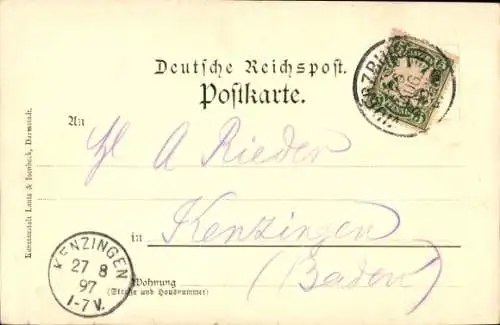 Deutsche Reichspost.
Postkarte.
An
A Rieder
in Kenzingen
(Baden)
Wohnung
(Straße und Hausnummer)
KENZINGEN
27 8
97
1-7 V.
WÜRZBURG
Kunstanstalt Lautz & Isenbeck, Darmstadt.